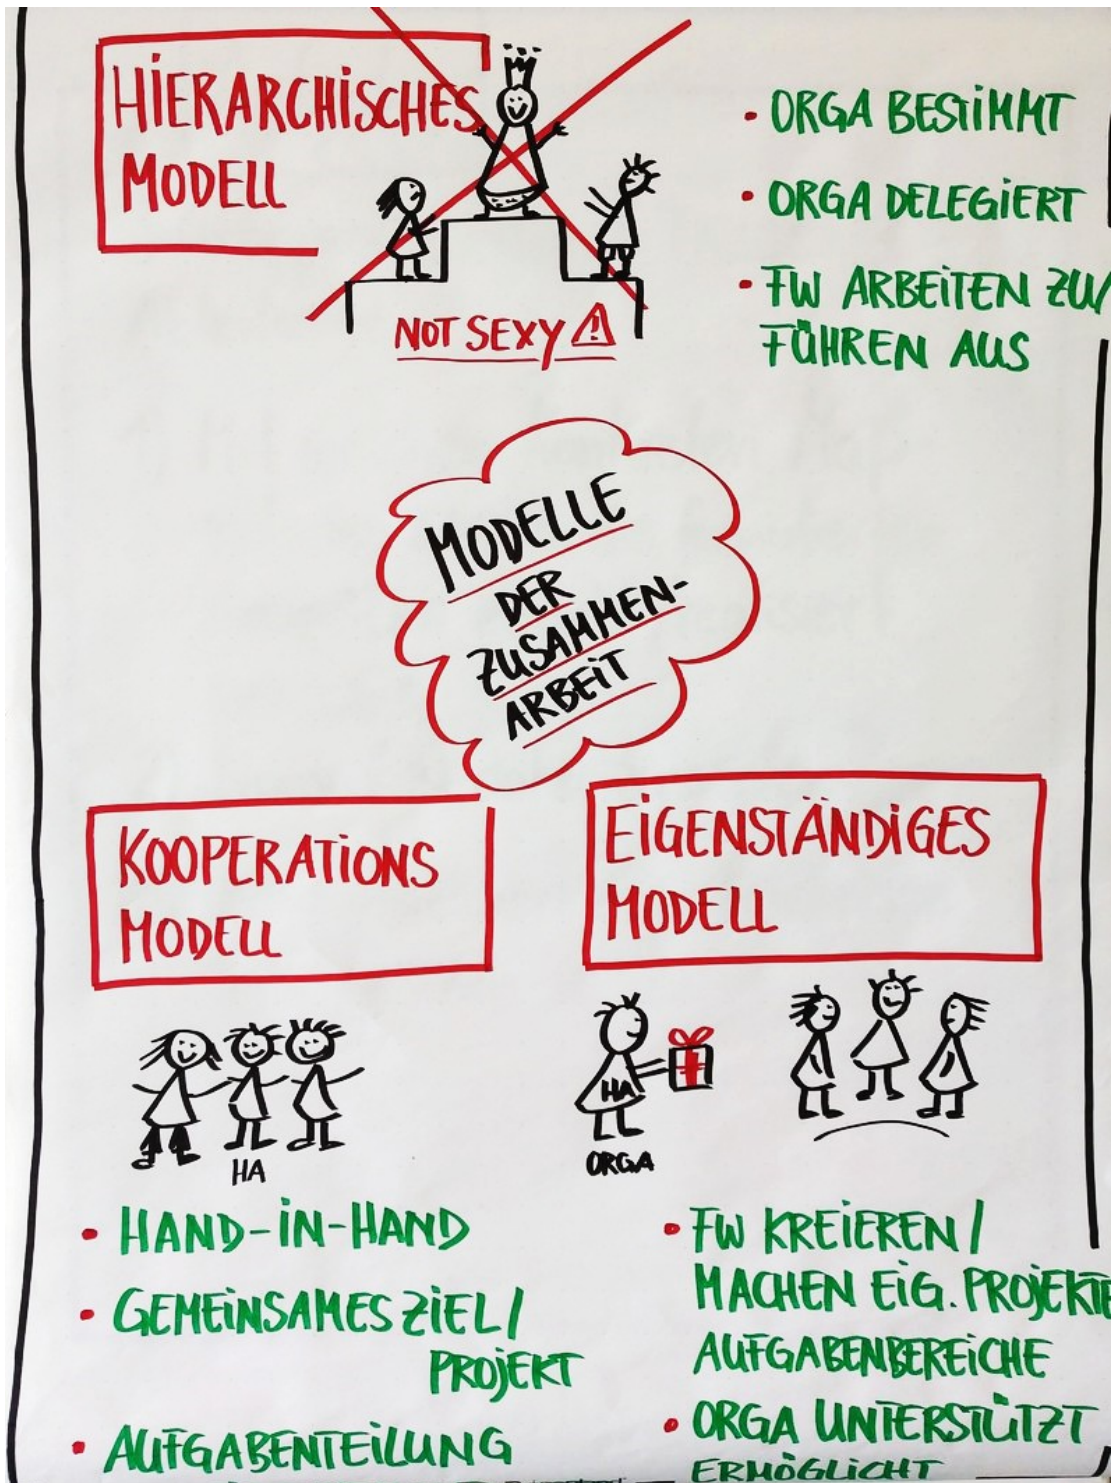 HIERARCHISCHES
MODELL
NOT SEXY
• ORGA BESTIMMT
• ORGA DELEGIERT
• FW ARBEITEN ZU/
FÜHREN AUS
MODELLE
DER
ZUSAMMEN-
ARBEIT
KOOPERATIONS
MODELL
HA
• HAND-IN-HAND
• GEMEINSAMES ZIEL/
PROJEKT
• AUFGABENTEILUNG
EIGENSTÄNDIGES
MODELL
HA
ORGA
• FW KREIEREN/
MACHEN EIG. PROJEKTE
AUFGABENBEREICHE
• ORGA UNTERSTÜTZT
ERMÖGLICHT